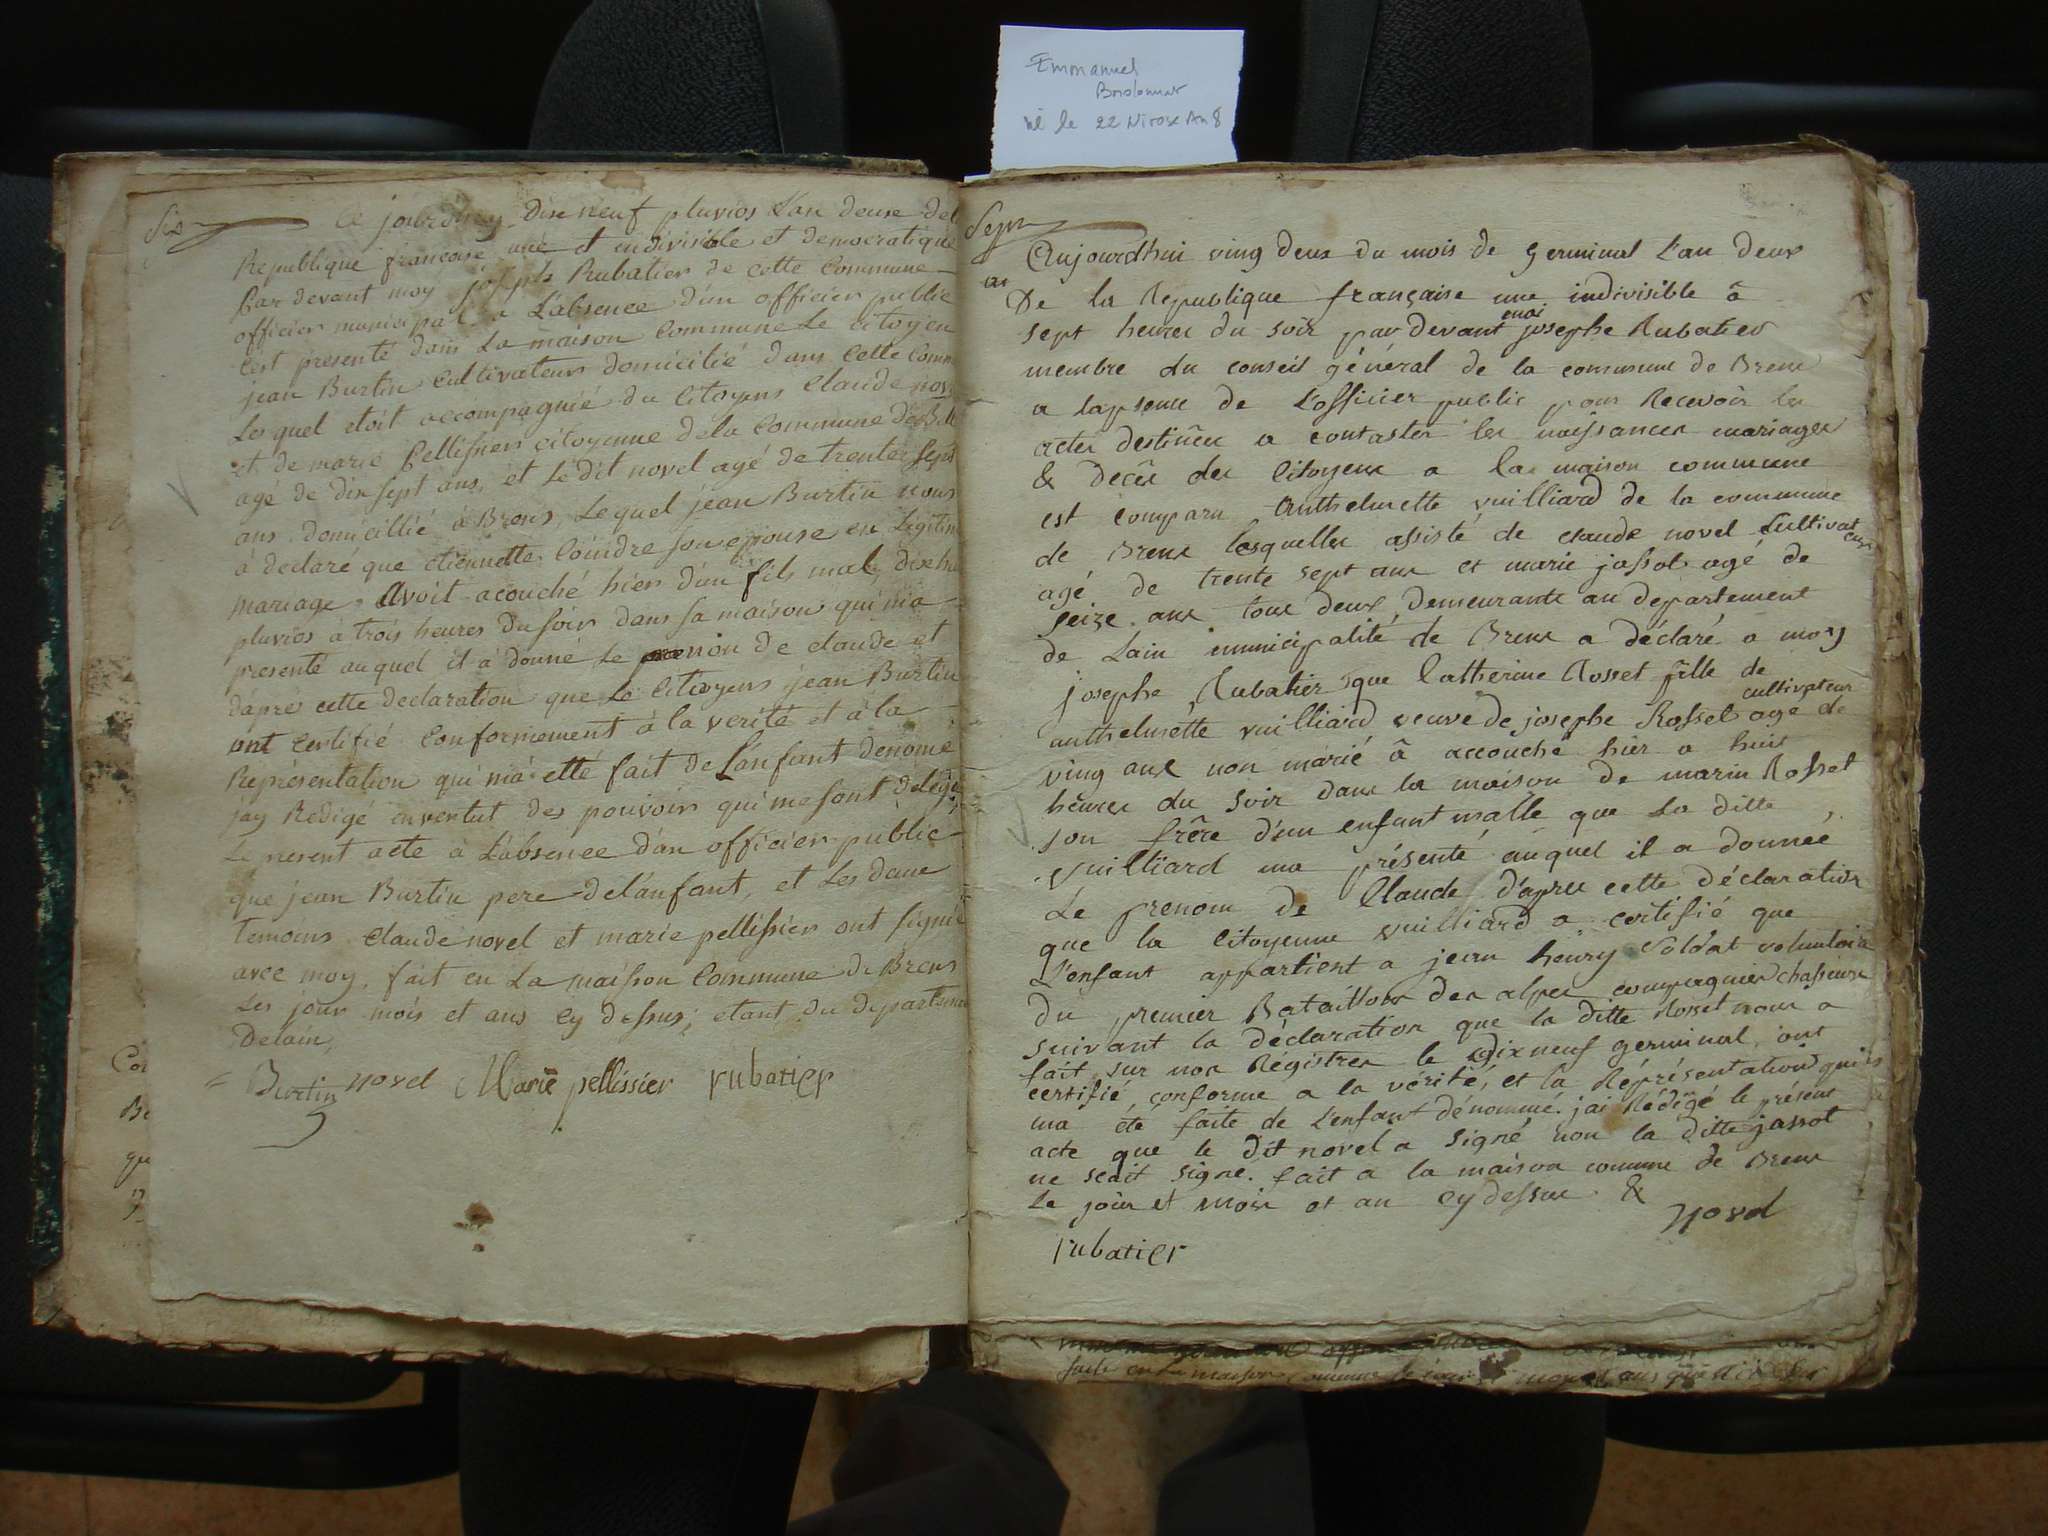 Emmanuel
né le 22 Nivose An 8
Six
Ce jourdhuy dixneuf pluvios Lan deuxe de
Republique francoise une et indivisible et democratique
Par devant moy joseph Rubatier de cette Commune
officier municipal a L'absence d'un officier public
c'est presenté dans La maison Commune Le Citoyen
jean Burtin Cultivateur domicilié dans Cette Comm
Lesquel etoit accompagnié du Citoyens Claude nov
et de marie Pellissier Citoyenne de la Commune de
agé de dix sept ans, et Le dit novel agé de trente sept
ans domicillié à Brens, Lequel jean Burtin nous
à declaré que etiennette Coindre son epouse en Legitim
mariage, Avoit acouché hier d'un fils mal, dixhu
pluvios à trois heures du soir dans sa maison qui m'a
presenté au quel il à donné Le prenon de claude et
d'apré cette declaration que Le Citoyens jean Burtin
ont Certifié Conformement à la verité et à la
Représentation qui m'à etté fait de L'anfant denomé
jay Redigé en vertut des pouvoir qui me sont deleg
Le present acte à L'absence d'an officier public
que jean Burtin pere de l'anfant, et Les deux
temoins Claude novel et marie pellissier ont signé
avec moy, fait en La maison Commune de Brens
Les jour mois et ans cy dessus; etant du departeme
Delain,
Burtin novel Marie pellissier rubatier
Sept
Aujourdhui ving deux du mois de Germinal L'an deux
De la Republique française une indivisible à
moi
sept heures du soir par devant josephe Rubatier
membre du conseil général de la commune de Brens
a lapsence de L'officier public pour Recevoir les
actes destinées a contaster les naissances mariages
& décès des Citoyens a la maison commune
est comparu Anthelmette vuilliard de la commune
de Brens lesquelles assisté de claude novel Cultivateur
agé de trente sept ans et marie jassot agé de
seize ans tous deux demeurants au département
de Lain municipalité de Brens a déclaré a moy
josephe Rubatier que Catherine Rosset fille de
cultivateur
anthelmette vuilliard veuve de josephe Rosset agé de
ving ans non marié à accouché hier a huit
heures du soir dans la maison de marin Rosset
son frère d'un enfant malle que La ditte
vuilliard ma présenté auquel il a donnée
Le prenom de Claude d'apres cette déclaration
que la Citoyenne vuilliard a certifié que
L'enfant appartient a jean henry Soldat volontaire
du premier Bataillon des alpes compagnies chasseurs
suivant la déclaration que la ditte Rosset nous a
fait sur nos Régistres le dixneuf germinal, ont
certifié conforme a la vérité, et la Réprésentation qui
ma été faite de L'enfant dénommé. jai Rédigé le présent
acte que le dit novel a signé non la ditte jassot
ne scait signe. fait a la maison comune de Brens
Le jour et mois et an cy dessus &
novel
rubatier